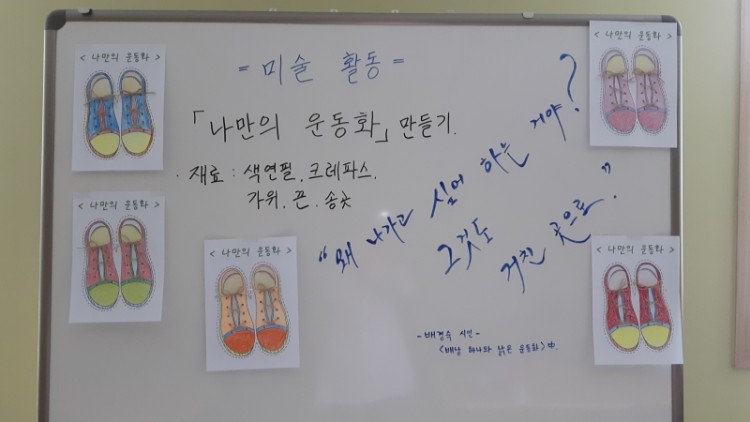 < 나만의 운동화 >
= 미술 활동 =
< 나만의 운동화 >
「나만의 운동화」 만들기.
· 재료 : 색연필, 크레파스,
가위, 끈, 송곳
"왜 나가고 싶어 하는 거야?
그것도
거친 곳으로."
< 나만의 운동화 >
< 나만의 운동화 >
< 나만의 운동화 >
- 배경숙 시인 -
<배낭 하나와 낡은 운동화> 中.